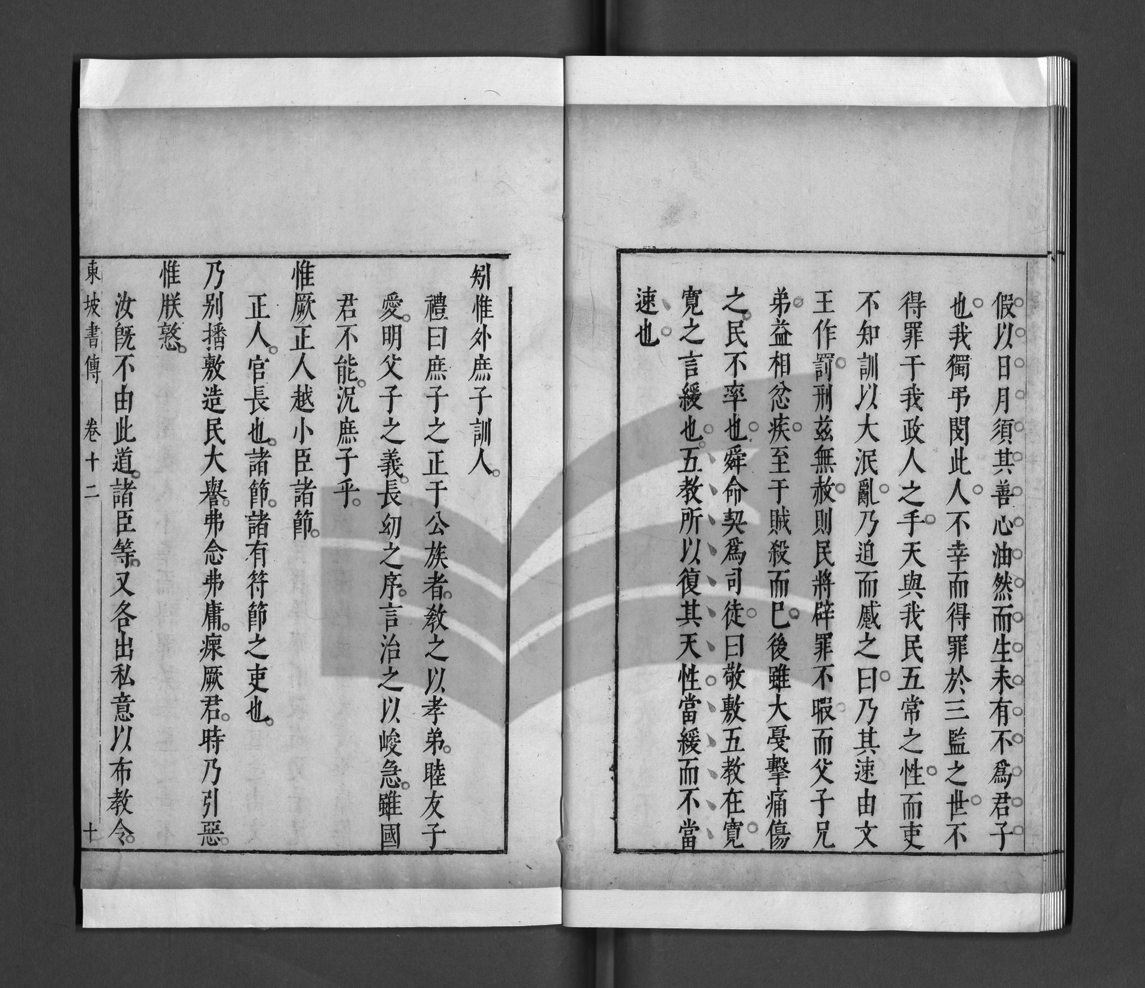 假以日月須其善心油然而生未有不爲君子
也我獨弔閔此人不幸而得罪於三監之世不
得罪于我政人之手天與我民五常之性而吏
不知訓以大泯亂乃迫而蹙之曰乃其速由文
王作罰刑茲無赦則民將辟罪不暇而父子兄
弟益相忿疾至于賊殺而已後雖大戞擊痛傷
之民不率也舜命契爲司徒曰敬敷五教在寬
寬之言緩也五教所以復其天性當緩而不當
速也
矧惟外庶子訓人
禮曰庶子之正于公族者教之以孝弟睦友子
愛明父子之義長幼之序言治之以峻急雖國
君不能況庶子乎
惟厥正人越小臣諸節
正人官長也諸節諸有符節之吏也
乃别播敷造民大譽弗念弗庸瘝厥君時乃引惡
惟朕憝
汝旣不由此道諸臣等又各出私意以布教令
東坡書傳 卷十二 十